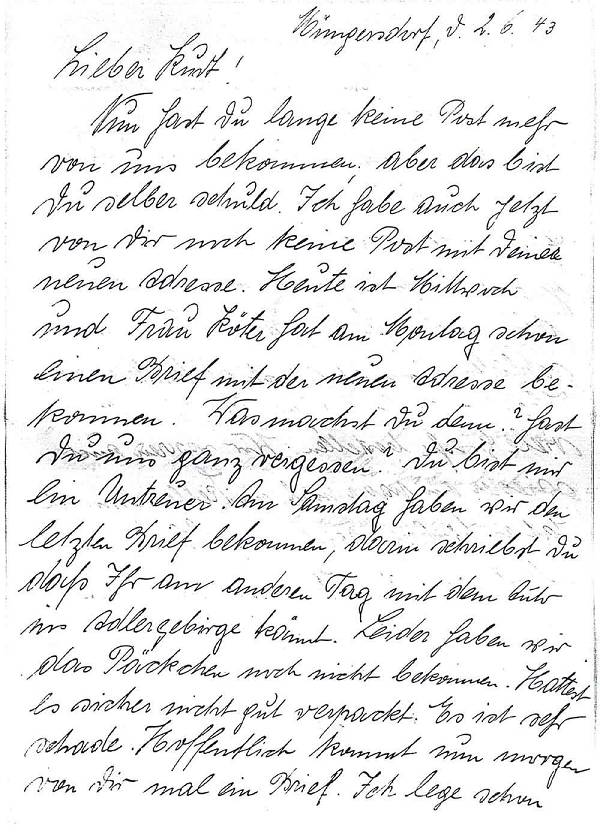 Hüngersdorf, d. 2. 6. 43
Lieber Kurt!
Nun hast Du lange keine Post mehr
von uns bekommen, aber das bist
Du selber schuld. Ich habe auch jetzt
von Dir noch keine Post mit Deiner
neuen Adresse. Heute ist Mittwoch
und Frau Köter hat am Montag schon
einen Brief mit der neuen Adresse be-
kommen. Was machst Du denn..? Hast
Du uns ganz vergessen? Du bist mir
ein Untreuer. Am Samstag haben wir den
letzten Brief bekommen, darin schriebst Du
daß Ihr am anderen Tag mit dem Auto
ins Adlergebirge kämt. Leider haben wir
das Päckchen noch nicht bekommen. Hattest
es sicher nicht gut verpackt. Es ist sehr
schade. Hoffentlich kommt nun morgen
von Dir mal ein Brief. Ich lege schon